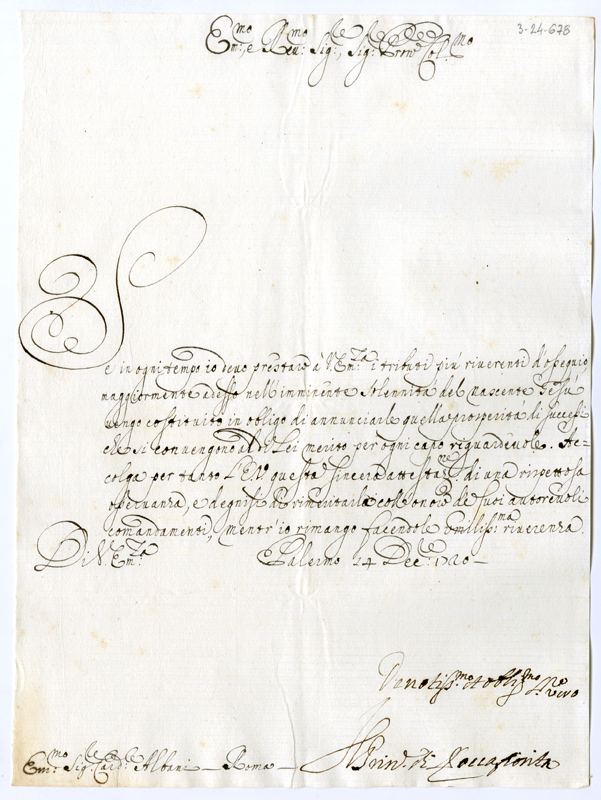 3-24-678
Em.mo e Reu.mo Sig.re, Sig.re Prone Col.mo
Se in ogni tempo io deuo prestare à V. Em.za i tributi più riuerenti d'ossequio
maggiormente adesso nell'imminente solennità del nascente Giesù
uengo costituito in obligo di annunciarle quella prosperità di successi
che si conuengono al di Lei merito per ogni capo riguardeuole. Ac=
colga per tanto L'E.V. questa sincera attestaz.ne di una rispettosa
osseruanza, e degnisi di rimeritarla coll'onore de suoi autoreuoli
comandamenti, mentr'io rimango facendole umiliss:ma riuerenza.
Di V. Em.za Palermo 24 Dec.e 1720 –
Deuotiss.mo et obblig.mo ser.re uero
Il Prin.e di Roccafiorita
Em.mo Sig.re Card.le Albani – Roma –